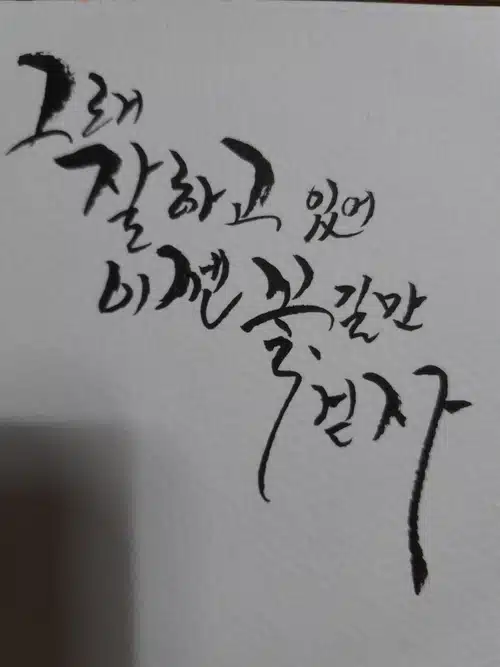 그래
잘하고 있어
이젠 꽃길만
걷자